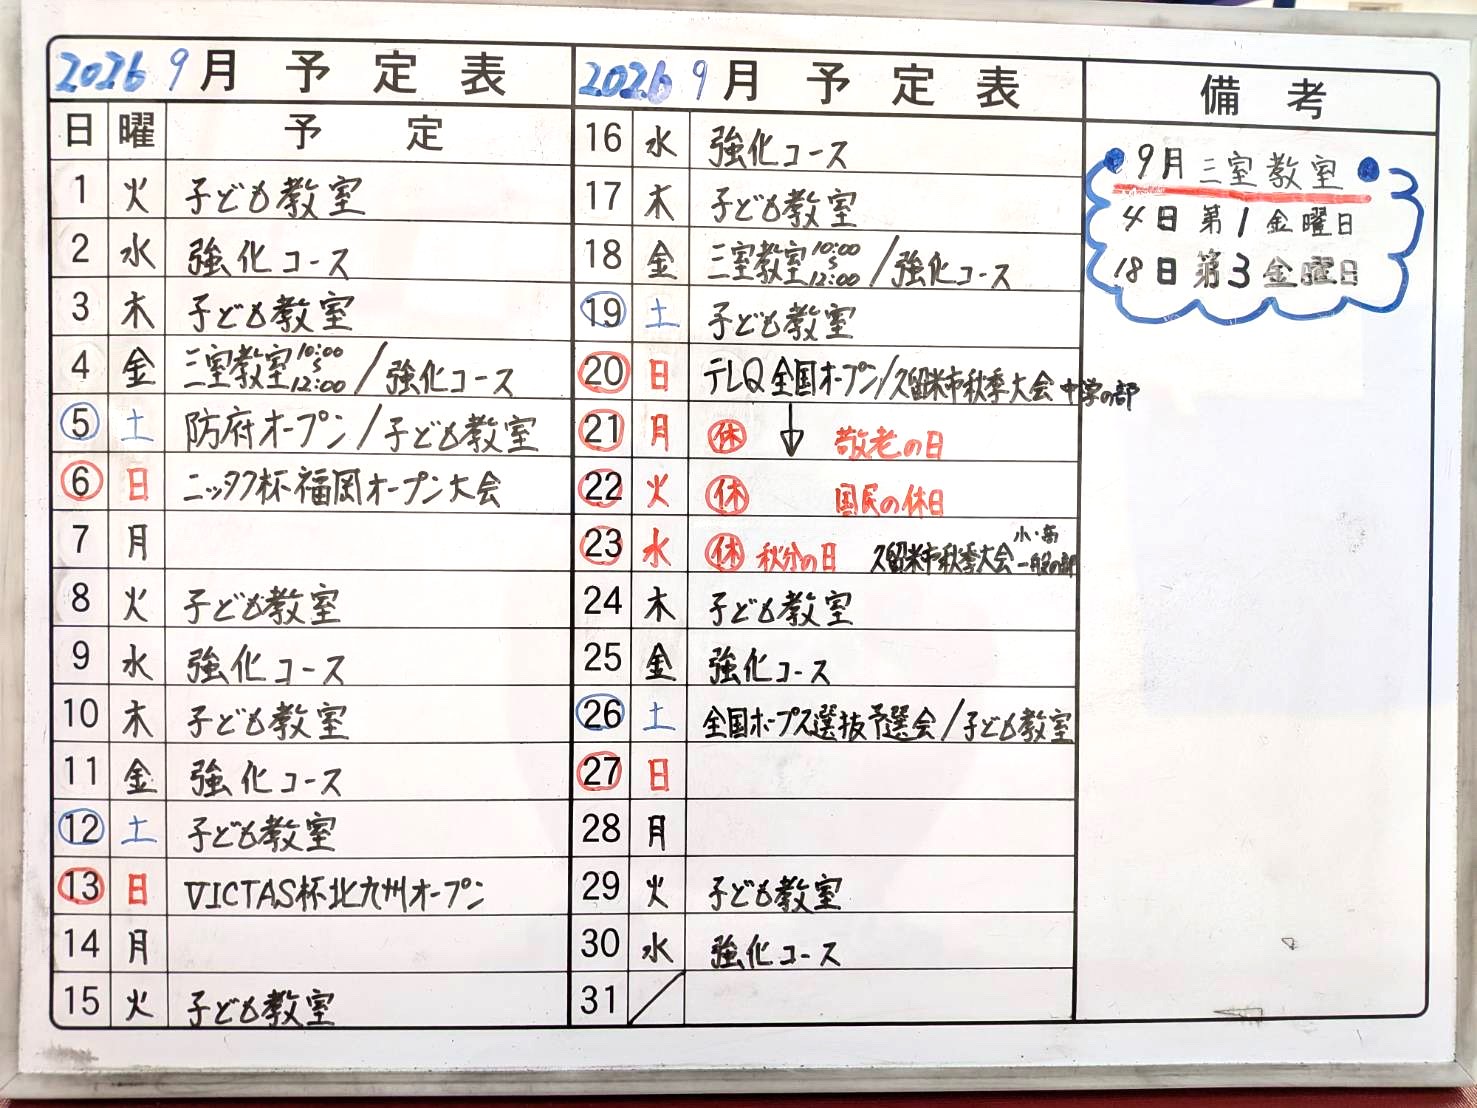 2026 9月 予定表
日 曜 予定
1 火 子ども教室
2 水 強化コース
3 木 子ども教室
4 金 三室教室 10:00 〜 12:00 / 強化コース
5 土 防府オープン / 子ども教室
6 日 ニッタク杯福岡オープン大会
7 月
8 火 子ども教室
9 水 強化コース
10 木 子ども教室
11 金 強化コース
12 土 子ども教室
13 日 VICTAS杯北九州オープン
14 月
15 火 子ども教室
2026 9月 予定表
16 水 強化コース
17 木 子ども教室
18 金 三室教室 10:00 〜 12:00 / 強化コース
19 土 子ども教室
20 日 テレQ全国オープン/久留米市秋季大会 中学の部
21 月 休 ↓ 敬老の日
22 火 休 国民の休日
23 水 休 秋分の日 久留米市秋季大会 小・高 一般の部
24 木 子ども教室
25 金 強化コース
26 土 全国ホープス選抜予選会 / 子ども教室
27 日
28 月
29 火 子ども教室
30 水 強化コース
31
備考
9月 三室教室
4日 第1金曜日
18日 第3金曜日